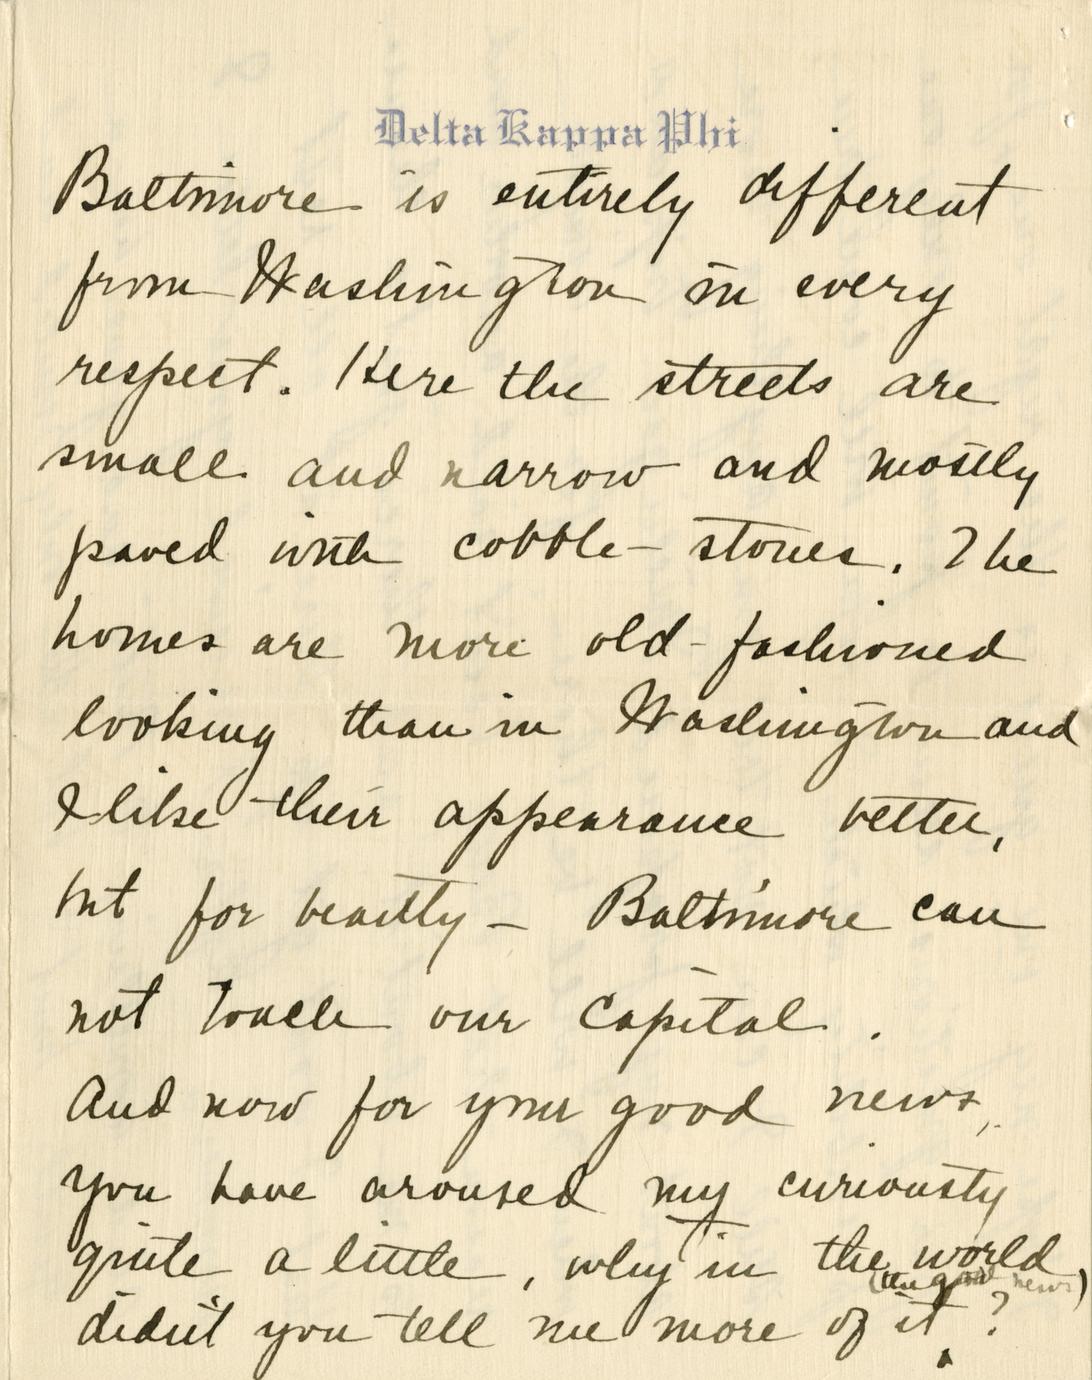 Delta Kappa Phi
Baltimore is entirely different
from Washington in every
respect. Here the streets are
small and narrow and mostly
paved with cobble-stones. The
homes are more old-fashioned
looking than in Washington and
I like their appearance better,
but for beauty — Baltimore can
not touch our Capital.
And now for your good news,
you have aroused my curiousty
quite a little, why in the world
(the good news)
didn't you tell me more of it?